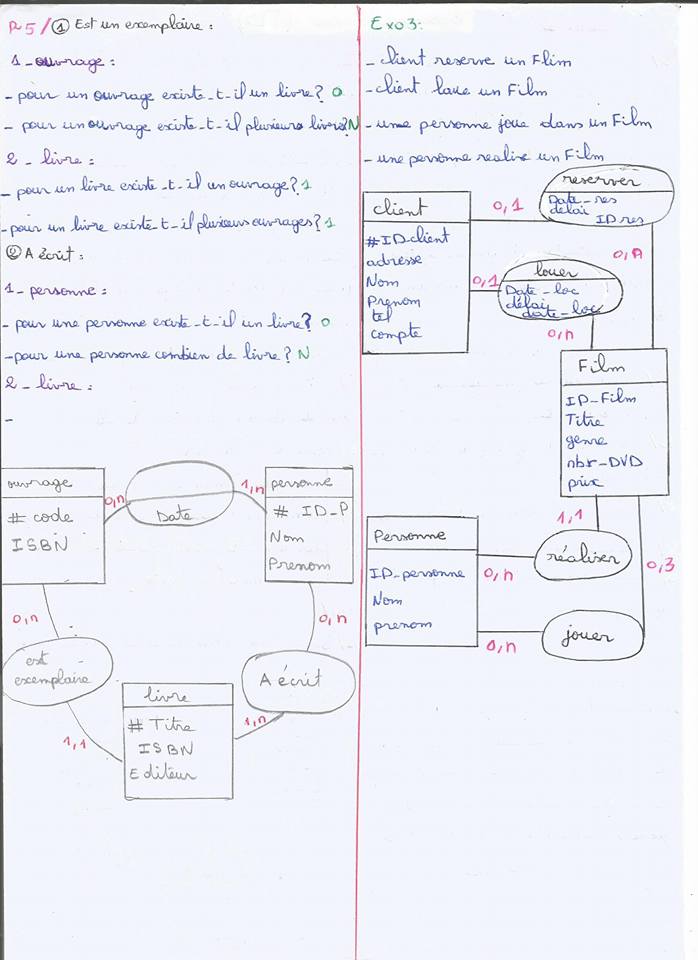 R5/① Est un exemplaire :
1 - ouvrage :
- pour un ouvrage existe-t-il un livre? O
- pour un ouvrage existe-t-il plusieurs livres? N
2 - livre :
- pour un livre existe-t-il un ouvrage? 1
- pour un livre existe-t-il plusieurs ouvrages? 1
② A écrit :
1 - personne :
- pour une personne existe-t-il un livre? O
- pour une personne combien de livre? N
2 - livre :
-
ouvrage
# code
ISBN
0,n
Date
1,n
personne
# ID_P
Nom
Prenom
0,n
est exemplaire
1,1
livre
# Titre
ISBN
Editeur
1,n
A écrit
0,n
Exo3:
- client reserve un Flim
- client loue un Film
- une personne joue dans un Film
- une personne realise un Film
client
#ID-client
adresse
Nom
Prenom
tel
compte
0,1
reserver
Date-res
délai
IDres
0,n
0,1
louer
Date-loc
délai
date-loc
0,n
Film
ID-Film
Titre
genre
nbr-DVD
prix
1,1
0,3
Personne
ID-personne
Nom
prenom
0,n
réaliser
0,n
jouer